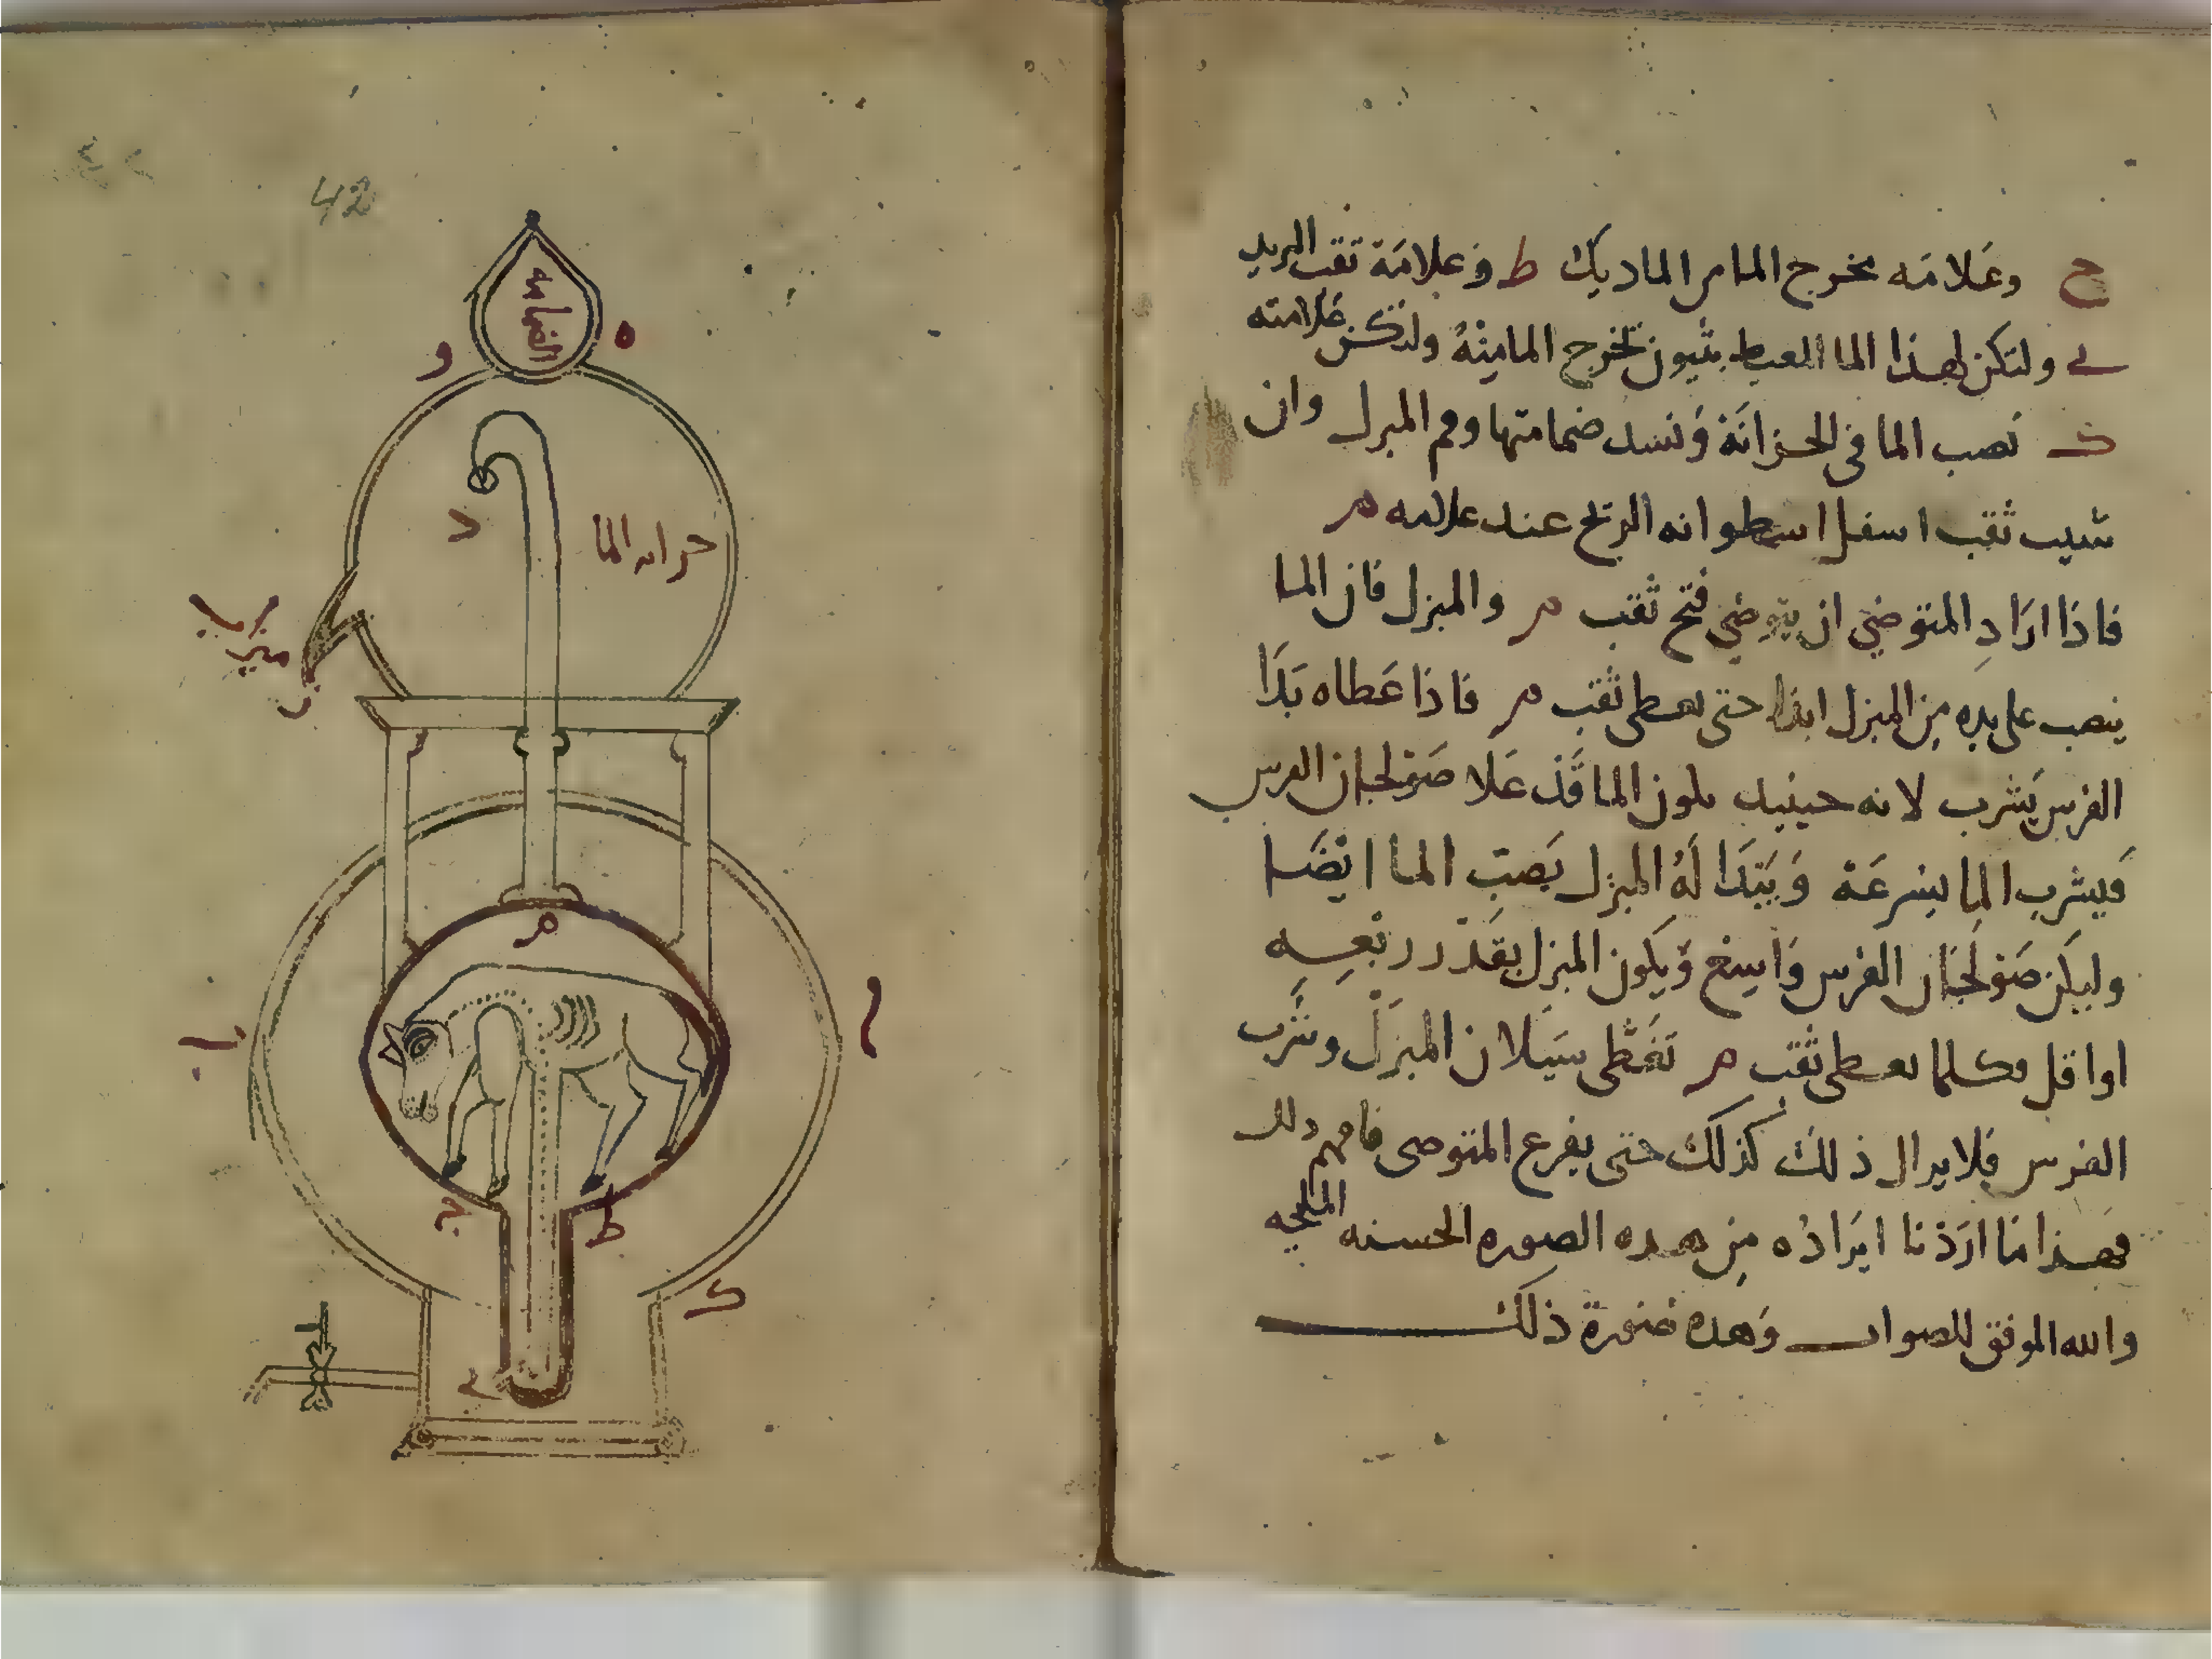 ح وعلامه مخرج الما من الما ديك ط وعلامة تقب البريد
ى ولتكن لهذا الما المعبط بثيون لخرج الما منه ولتكن علامته
ك نصب الما فى الخزانة ونسد ضمامتها وفم المبزل وان
شيت ثقب اسفل اسطوانه الريح عند علامه م
فاذا اراد المتوضي ان يتوضي فتح ثقب م والمبزل فان الما
ينصب على يده من المبزل ابدا حتى يعطى ثقب م فاذا عطاه بدا
الفرس يشرب لانه حينيد يكون الما قد علا صولجان الفرس
فيشرب الما بسرعة ويبتدا له المبزل يصب الما ايضا
وليكن صولجان الفرس واسع ويكون المبزل بقدر ربعه
او اقل فكلما يعطى ثقب م تغطى سيلان المبزل وشرب
الفرس فلا يزال ذلك كذلك حتى يفرع المتوضى فافهم ذلك
فهذا ما اردنا ايراده من هذه الصوره الحسنه المليحه
والله الموفق للصواب وهذه صورة ذلك
42
٤٢
الضمامه
ه
و
د
خزانه الما
ميزب
ب
م
ا
ح
ط
ك
ى